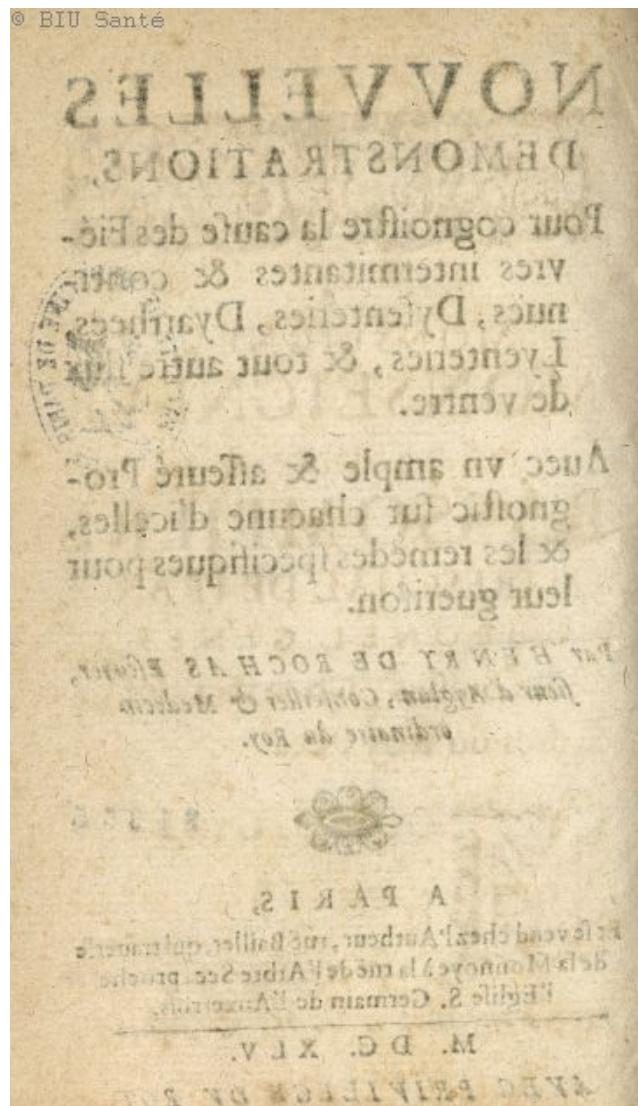 © BIU Santé
NOVVELLES
DEMONSTRATIONS,
Pour cognoiſtre la cauſe des Fié-
vres intermitantes & conti-
nuës, Dyſenteries, Dyarrhees,
Lyenteries, & tout autre flux
de ventre.
Auec vn ample & aſſeuré Pro-
gnoſtic ſur chacune d'icelles,
& les remedes ſpecifiques pour
leur gueriſon.
Par HENRY DE ROCHAS Eſcuyer,
ſieur d'Ayglun, Conſeiller & Medecin
ordinaire du Roy.
A PARIS,
Et ſe vend chez l'Autheur, ruë Baillet, qui trauerſe
de la Monnoye à la ruë de l'Arbre Sec, proche
l'Egliſe S. Germain de l'Auxerrois.
M. DC. XLV.
AVEC PRIVILEGE DV ROY.